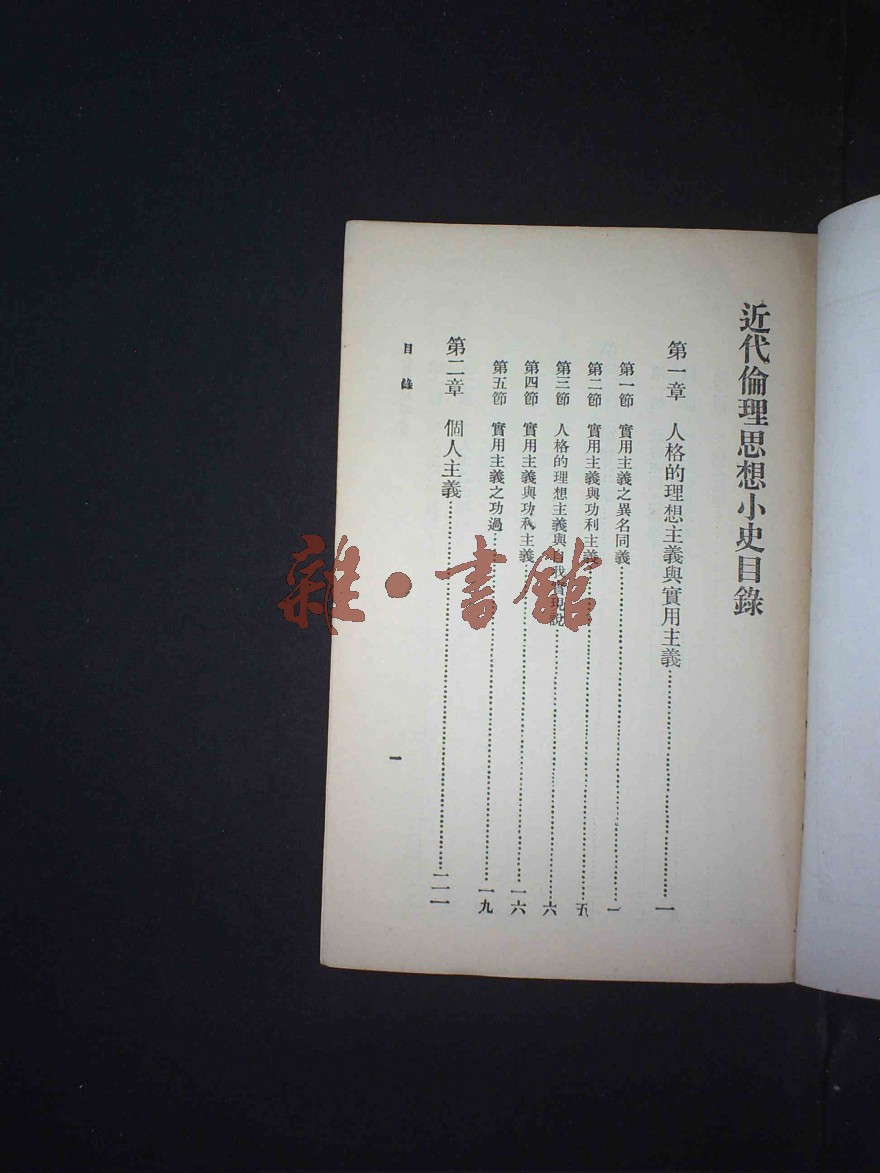 近代倫理思想小史目錄
第一章　人格的理想主義與實用主義……一
第一節　實用主義之異名同義……一
第二節　實用主義與功利主義……五
第三節　人格的理想主義與自我實現說……六
第四節　實用主義與功利主義……一六
第五節　實用主義之功過……一九
第二章　個人主義……二一
目錄
一
雜·書館